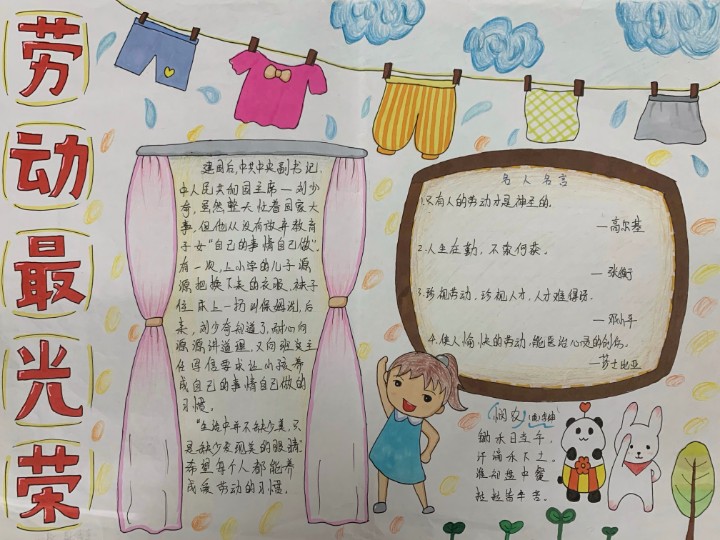 劳动最光荣
建国后,中共中央副书记,
中人民共和国主席——刘少
奇,虽然整天忙着国家大
事,但他从没有放弃教育
子女"自己的事情自己做"。
有一次,上小学的儿子源
源把换下来的衣服、袜子
往床上一扔叫保姆洗,后
来,刘少奇知道了,耐心向
源源讲道理,又向班主
任写信要求让小孩养
成自己的事情自己做的
习惯。
"生活中并不缺少美,只
是缺少发现美的眼睛"
希望每个人都能养
成爱劳动的习惯。
名人名言
1.只有人的劳动才是神圣的。
—高尔基
2.人生在勤,不索何获。
—张衡
3.珍视劳动,珍视人才,人才难得呀。
—邓小平
4.使人愉快的劳动,能医治心灵的创伤。
—莎士比亚
《悯农》
锄禾日当午,
汗滴禾下土。
谁知盘中餐
粒粒皆辛苦。